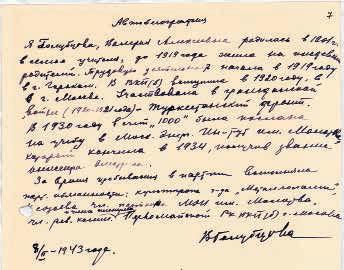 7
Автобиография
Я Голубцова, Валерия Алексеевна родилась в 1901 г.
в семье учителя, до 1919 года жила на иждивении
родителей. Трудовую деятельность начала в 1919 году
в г. Горьком. В ВКП(б) вступила в 1920 году, в
в г. Москве. Участвовала в гражданской
войне (1920-1921 года) – Туркестанский фронт.
В 1930 году в счёт "1000" была послана
на учёбу в Моск. Энер. Ин-тут им. Молотова,
который кончила в 1934, получив звание
инженера
За время пребывания в партии выполняла
парт. обязанности: парторга з-да "Металлолампа",
чл. МЭИ им. Молотова,
чл. рев. комис. Первомайского РК ВКП(б) г. Москвы
8/II – 1943 года.
ВГолубцова